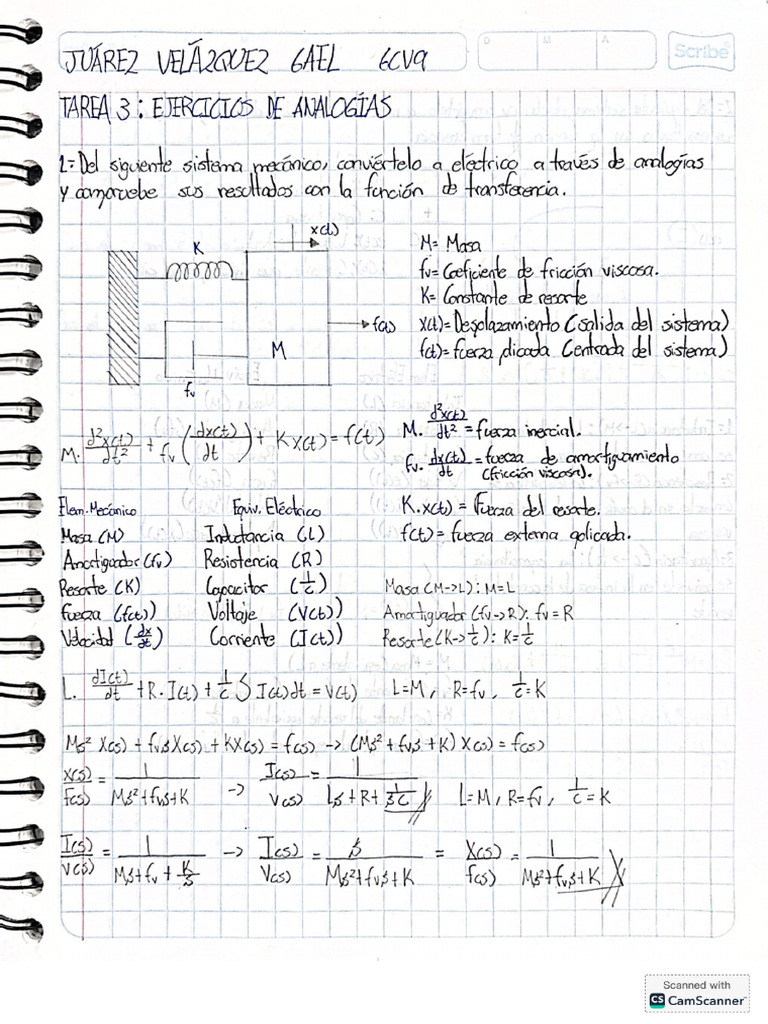 JUÁREZ VELÁZQUEZ GAEL 6CV9
D M A Scribe
TAREA 3: EJERCICIOS DE ANALOGÍAS
1.- Del siguiente sistema mecánico, conviértelo a eléctrico a través de analogías
y compruebe sus resultados con la función de transferencia.
x(t)
K
f(s)
M
fv
M= Masa
fv= Coeficiente de fricción viscosa.
K= Constante de resorte
x(t)= Desplazamiento (salida del sistema)
f(t)= fuerza plicada (entrada del sistema)
M. d²x(t)/dt² + fv (dx(t)/dt) + K x(t) = f(t)
M. d²x(t)/dt² = fuerza inercial.
fv. dx(t)/dt = fuerza de amortiguamiento
(fricción viscosa).
K.x(t) = Fuerza del resorte.
f(t) = fuerza externa aplicada.
Elem. Mecánico Equiv. Eléctrico
Masa (M) Inductancia (L)
Amortiguador (fv) Resistencia (R)
Resorte (K) Capacitor (1/C)
Fuerza (f(t)) Voltaje (V(t))
Velocidad (dx/dt) Corriente (I(t))
Masa (M->L): M=L
Amortiguador (fv->R): fv=R
Resorte (K->1/C): K=1/C
L. dI(t)/dt + R.I(t) + 1/C ∫ I(t)dt = V(t) L=M, R=fv, 1/C=K
Ms² X(s) + fvsX(s) + KX(s) = f(s) -> (Ms² + fvs + K) X(s) = f(s)
X(s)/F(s) = 1/(Ms²+fvs+K) -> I(s)/V(s) = 1/(Ls + R + 1/sC) L=M, R=fv, 1/C=K
I(s)/V(s) = 1/(Ms+fv+K/s) -> I(s)/V(s) = s/(Ms²+fvs+K) = X(s)/f(s) = 1/(Ms²+fvs+K)
Scanned with
CS CamScanner